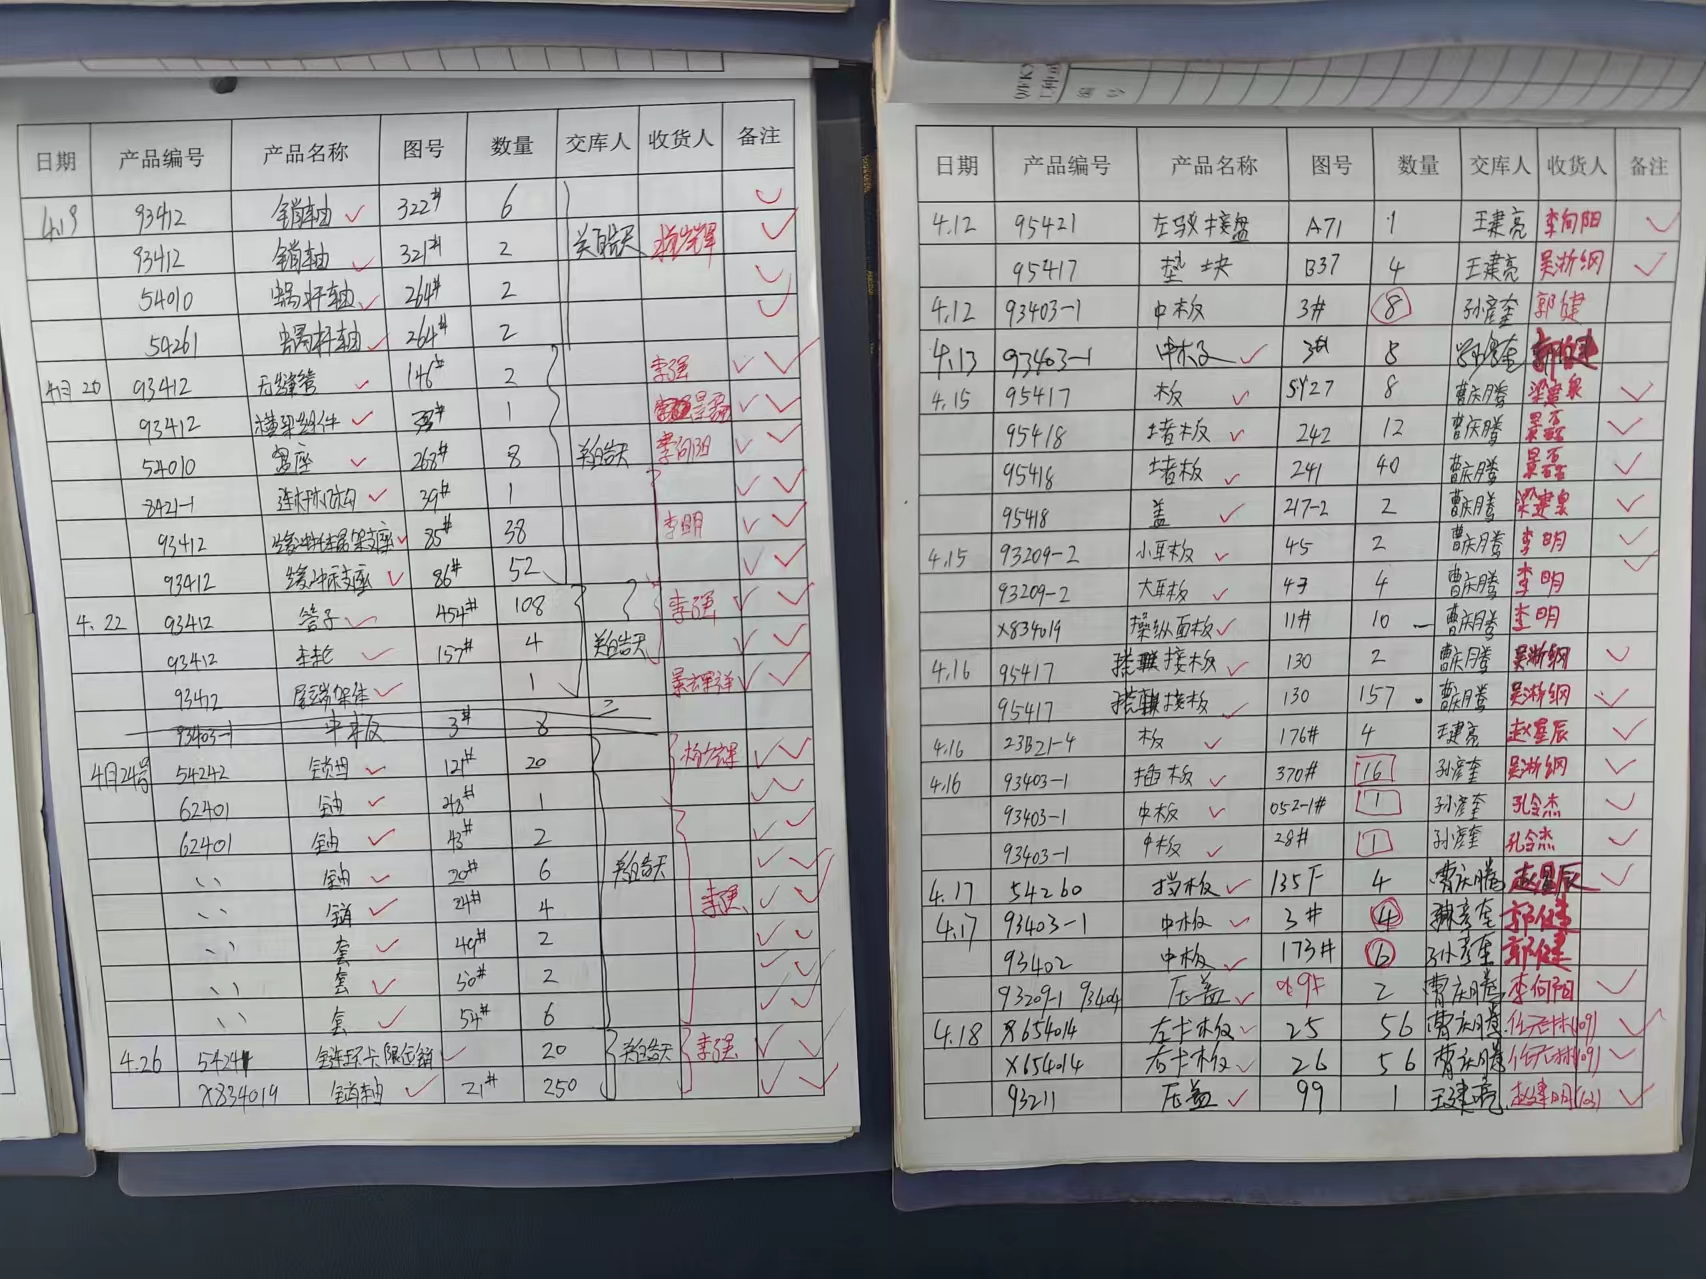 日期 产品编号 产品名称 图号 数量 交库人 收货人 备注
4.19 93412 销轴 322# 6
93412 销轴 321# 2
54010 蜗杆轴 264# 2
54261 蜗杆轴 264# 2
4月20 93412 无缝管 146# 2 李强
93412 横梁组件 1
54010 座 268# 8 李向阳
8421-1 39# 1
93412 缓冲 支座 85# 38 李明
93412 缓冲示支座 86# 52
4.22 93412 管子 454# 108 李强
93412 157# 4
93412 尾端架体 1
93403-1 中板 3# 8
4月24号 54242 121# 20
62401 轴 48# 1
62401 轴 43# 2
〃 轴 20# 6
〃 销 24# 4 李强
〃 套 49# 2
〃 套 50# 2
〃 套 54# 6
4.26 链环卡限位销 20 李强
X834019 销轴 21# 250
日期 产品编号 产品名称 图号 数量 交库人 收货人 备注
4.12 95421 左驭接盘 A71 1 王建亮 李向阳
95417 垫块 B37 4 王建亮 吴淅纲
4.12 93403-1 中板 3# 8 孙彦奎 郭健
4.13 93403-1 中板 3# 8 郭健
4.15 95417 板 SY27 8 曹庆腾 梁建泉
95418 堵板 242 12 曹庆腾 景磊
95418 堵板 241 40 曹庆腾 景磊
95418 盖 217-2 2 曹庆腾 梁建泉
4.15 93209-2 小耳板 45 2 曹庆腾 李明
93209-2 大耳板 47 4 曹庆腾 李明
X834019 操纵面板 11# 10 曹庆腾 李明
4.16 95417 搭联接板 130 2 曹庆腾 吴淅纲
95417 搭联接板 130 157 曹庆腾 吴淅纲
4.16 23B21-4 板 176# 4 王建亮 赵星辰
4.16 93403-1 插板 370# 16 孙彦奎 吴淅纲
93403-1 中板 052-1# 1 孙彦奎 孔令杰
93403-1 中板 28# 1 孙彦奎 孔令杰
4.17 54260 挡板 135F 4 曹庆腾 赵星辰
4.17 93403-1 中板 3# 4 孙彦奎 郭健
93402 中板 173# 6 孙彦奎 郭健
93209-1 93404 压盖 2 曹庆腾 李向阳
4.18 X654014 左卡板 25 56 曹庆腾 任元林(109)
X654014 右卡板 26 56 曹庆腾 任元林(109)
93211 压盖 99 1 王建亮 赵建明(103)